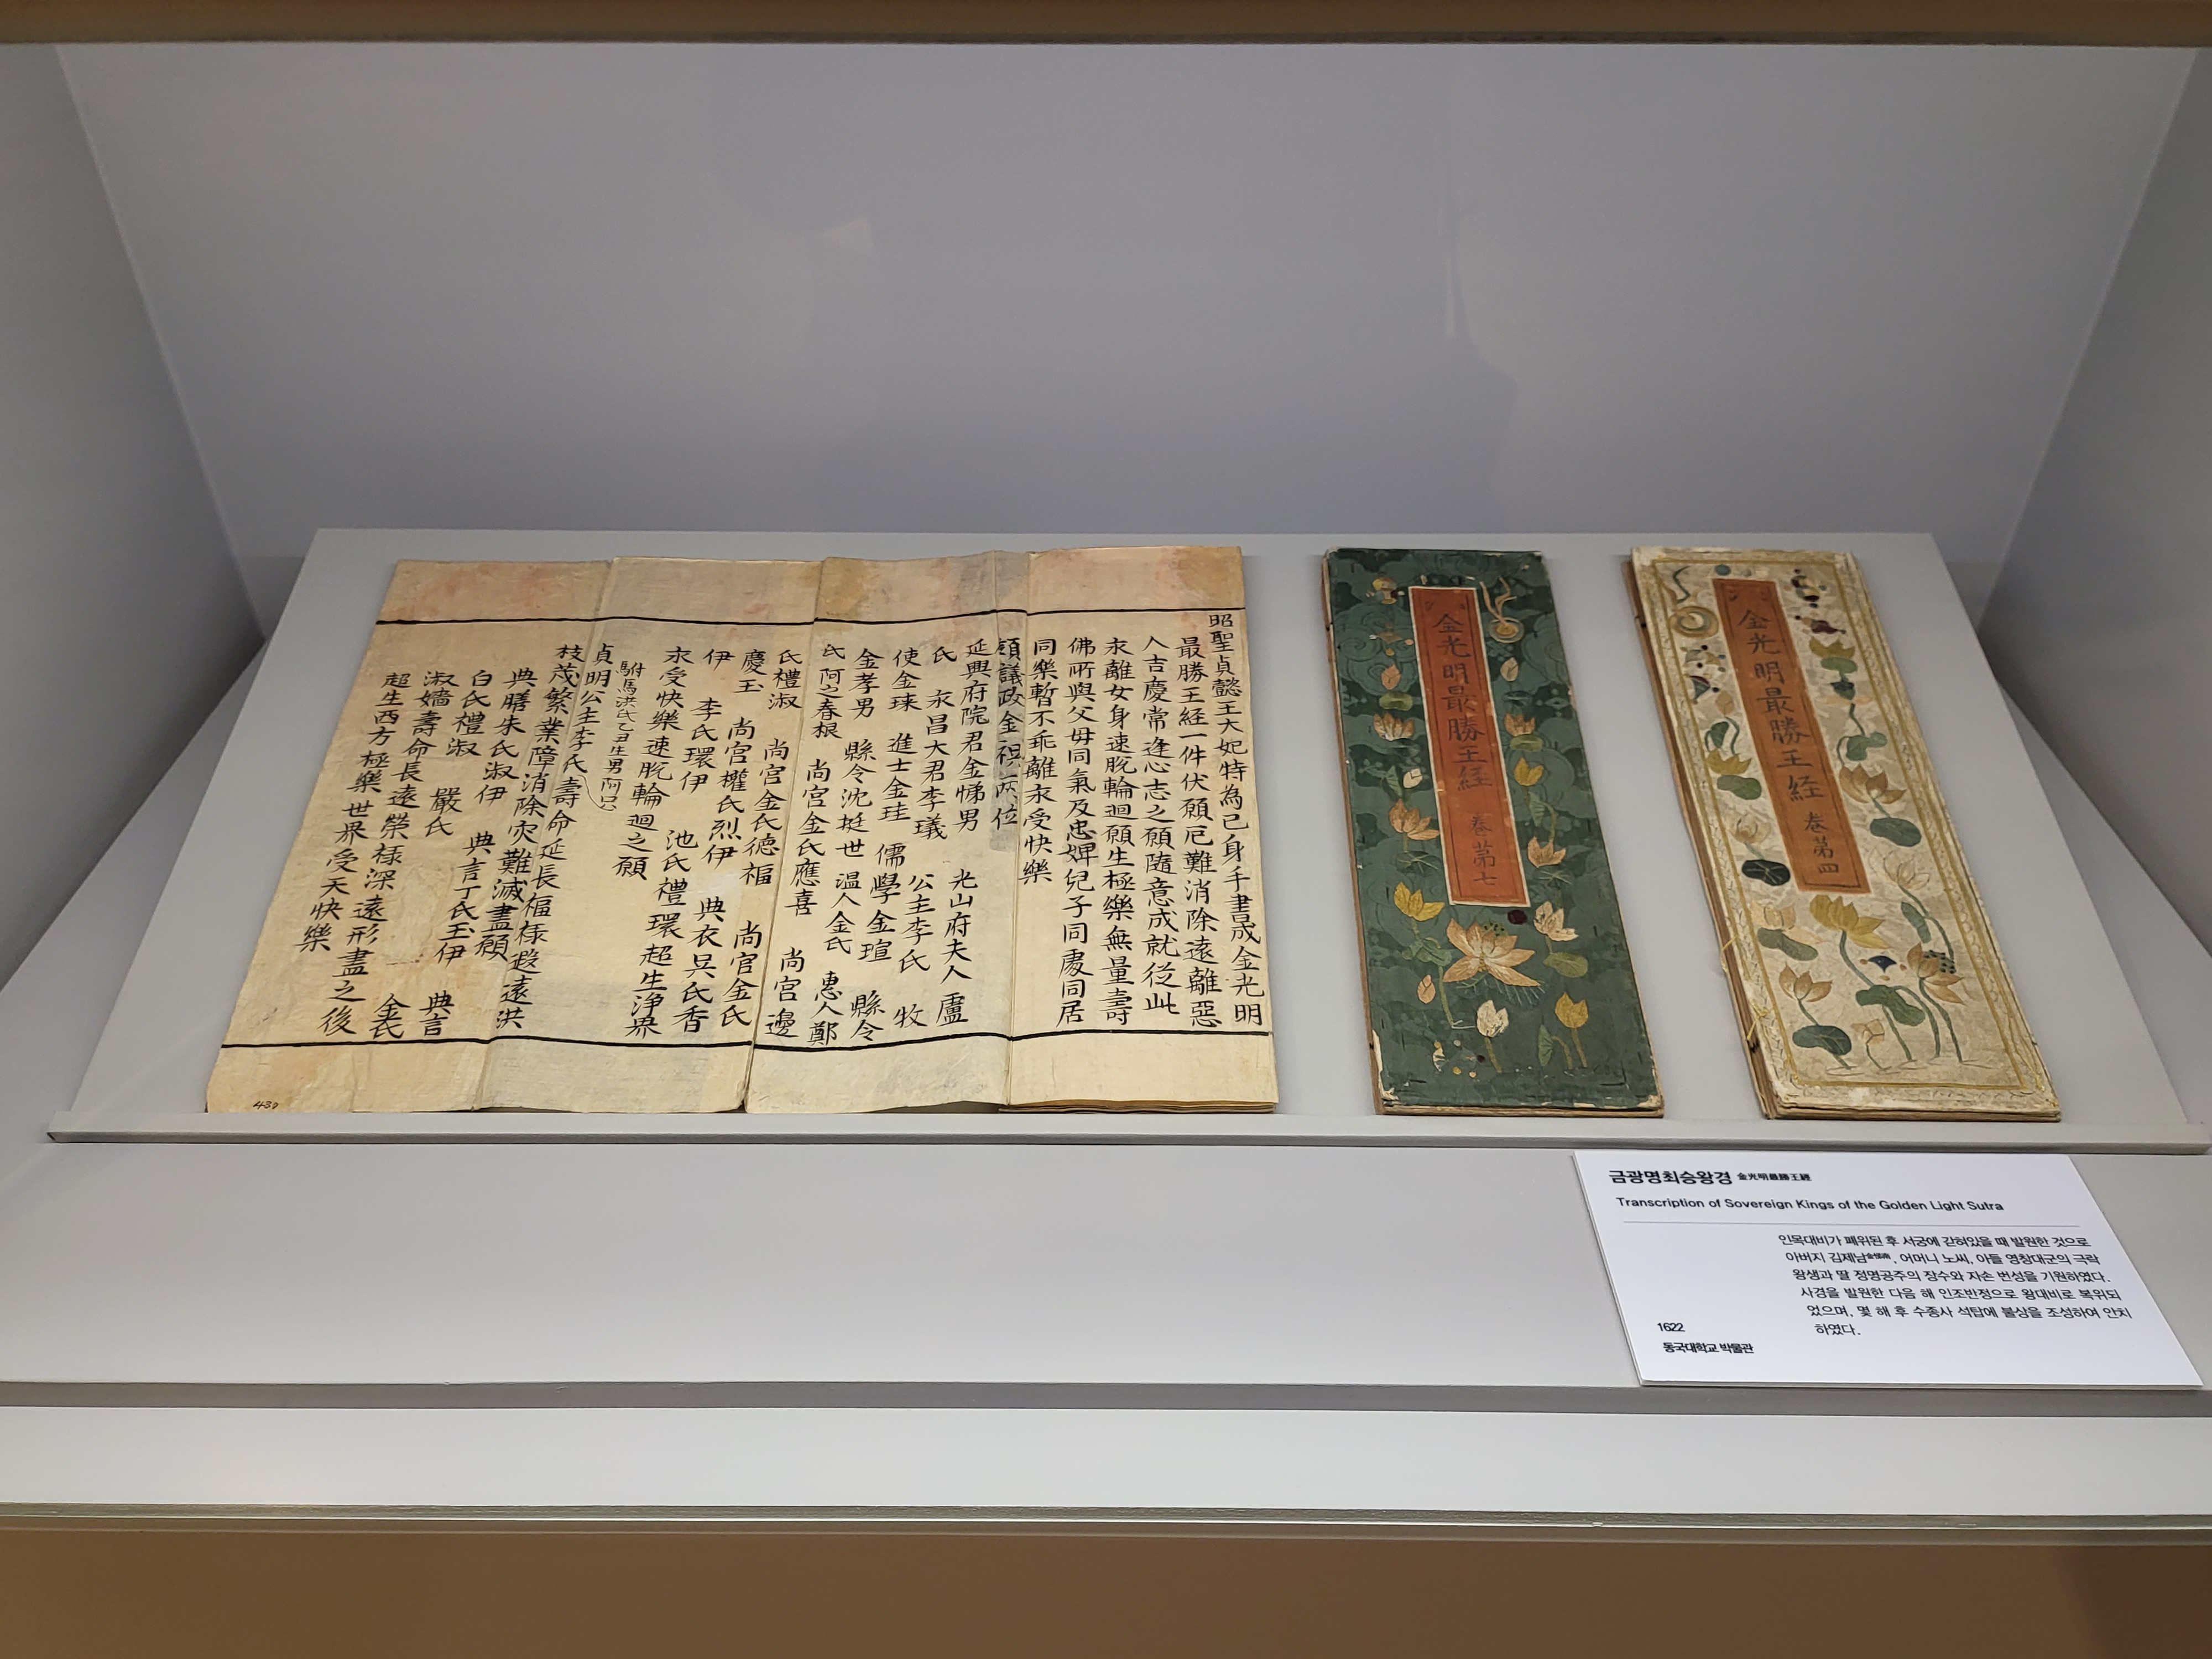 昭聖貞懿王大妃特為己身手書成金光明
最勝王経一件伏願厄難消除遠離惡
人吉慶常逢心志之願隨意成就從此
永離女身速脫輪迴願生極樂無量壽
佛所與父母同氣及忠婢兒子同處同居
同樂暫不乖離永受快樂
領議政金祖兩位
延興府院君金悌男 光山府夫人盧
氏 永昌大君李㼁 公主李氏 牧
使金琜 進士金珪 儒學金瑄 縣令
金孝男 縣令沈挺世 溫人金氏 惠人鄭
氏 阿之春根 尚宮金氏應喜 尚宮邊
氏禮淑 尚宮金氏德福 尚宮金氏
慶玉 尚宮權氏烈伊 典衣吳氏香
伊 李氏環伊 池氏禮環 超生淨界
永受快樂速脫輪迴之願
駙馬洪氏乙丑生男阿只
貞明公主李氏壽命延長福祿遐遠洪
枝茂繁業障消除灾難滅盡願
典膳朱氏淑伊 典言丁氏玉伊 典言
白氏禮淑 嚴氏 金氏
淑嬙壽命長遠榮祿深遠形盡之後
超生西方極樂世界受天快樂
430
金光明最勝王経 卷第七
金光明最勝王経 卷第四
금광명최승왕경 金光明最勝王經
Transcription of Sovereign Kings of the Golden Light Sutra
인목대비가 폐위된 후 서궁에 갇혀있을 때 발원한 것으로
아버지 김제남金悌男, 어머니 노씨, 아들 영창대군의 극락
왕생과 딸 정명공주의 장수와 자손 번성을 기원하였다.
사경을 발원한 다음 해 인조반정으로 왕대비로 복위되
었으며, 몇 해 후 수종사 석탑에 불상을 조성하여 안치
하였다.
1622
동국대학교 박물관